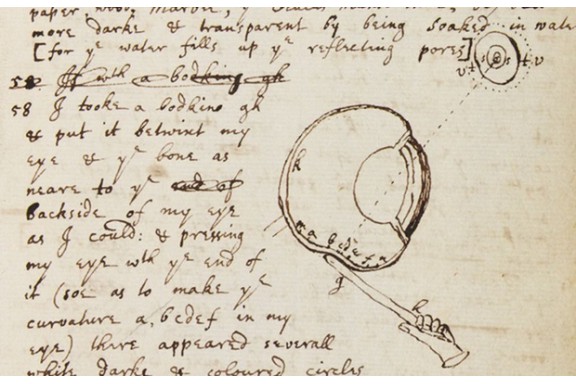 paper, wood, marble,
more darke & transparent by being soaked in wate
[for yᵉ water fills up yᵉ reflecting pores]
58 If wth a bodking gh
58 I tooke a bodkine gh
& put it betwixt my
eye & yᵉ bone as
neare to yᵉ end of
backside of my eye
as I could: & pressing
my eye wth yᵉ end of
it (soe as to make yᵉ
curvature a, bcdef in my
eye) there appeared severall
white darke & coloured circles
v t s s t v
k
m a b c d e f n
g
h